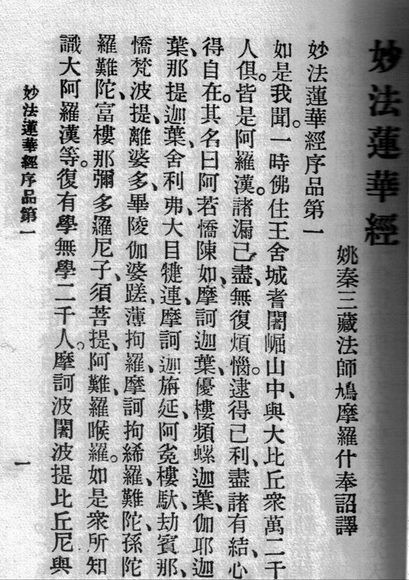 妙法蓮華經
姚秦三藏法師鳩摩羅什奉詔譯
妙法蓮華經序品第一
如是我聞一時佛住王舍城耆闍崛山中、與大比丘衆萬二千
人俱。皆是阿羅漢。諸漏已盡、無復煩惱。逮得己利、盡諸有結、心
得自在。其名曰阿若憍陳如、摩訶迦葉、優樓頻螺迦葉、伽耶迦
葉、那提迦葉、舍利弗、大目犍連、摩訶迦旃延、阿㝹樓馱、劫賓那、
憍梵波提、離婆多、畢陵伽婆蹉、薄拘羅、摩訶拘絺羅、難陀、孫陀
羅難陀、富樓那彌多羅尼子、須菩提、阿難、羅睺羅。如是衆所知
識大阿羅漢等。復有學無學二千人。摩訶波闍波提比丘尼與
妙法蓮華經序品第一
一